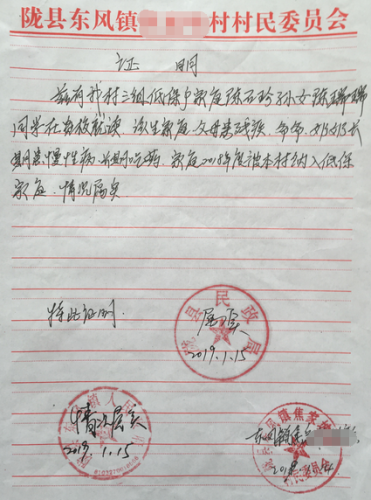 陇县东风镇 村村民委员会
证 明
兹有我村三组低保户家庭陈石玲孙女陈瑞瑞
同学在贵校就读 该生家庭父母亲残疾 爷爷、奶奶长
期患慢性病 长期吃药 家庭2018年度被本村纳入低保
家庭 情况属实
特此证明.
县民政局
属实
2019.1.15
情况属实
2019.1.15
东风镇